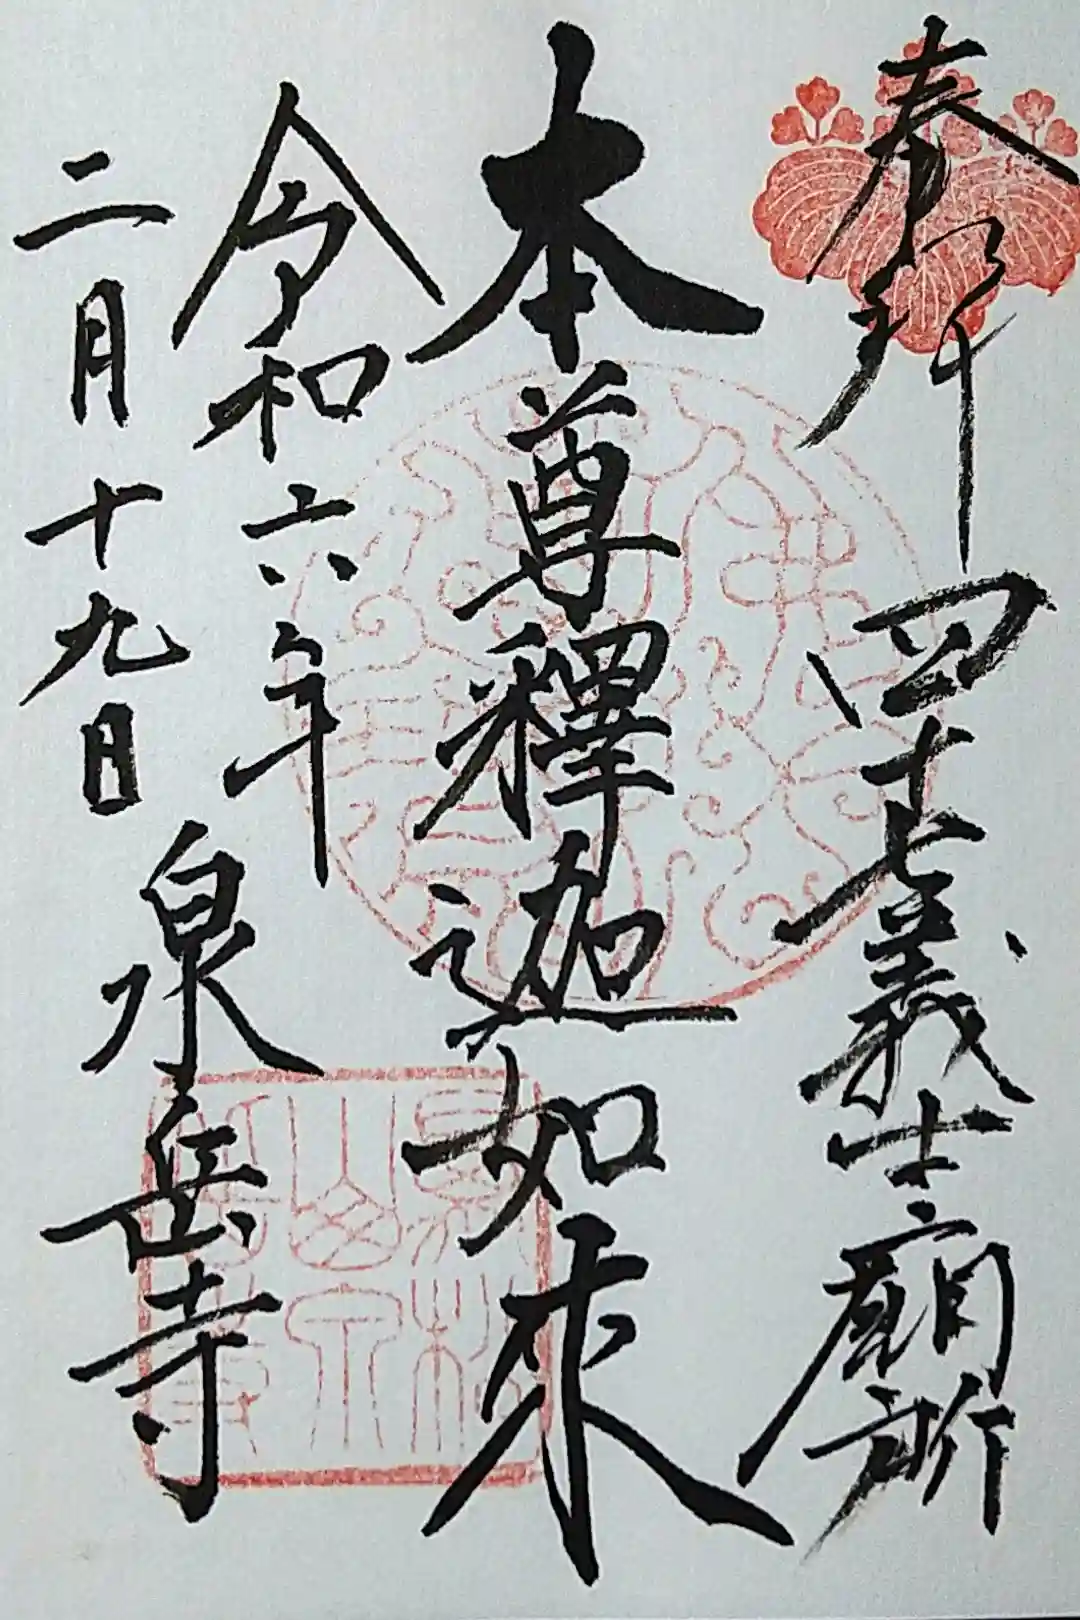 奉拝 四十七義士廟所
本尊釋迦如来
令和六年
二月十九日 泉岳寺